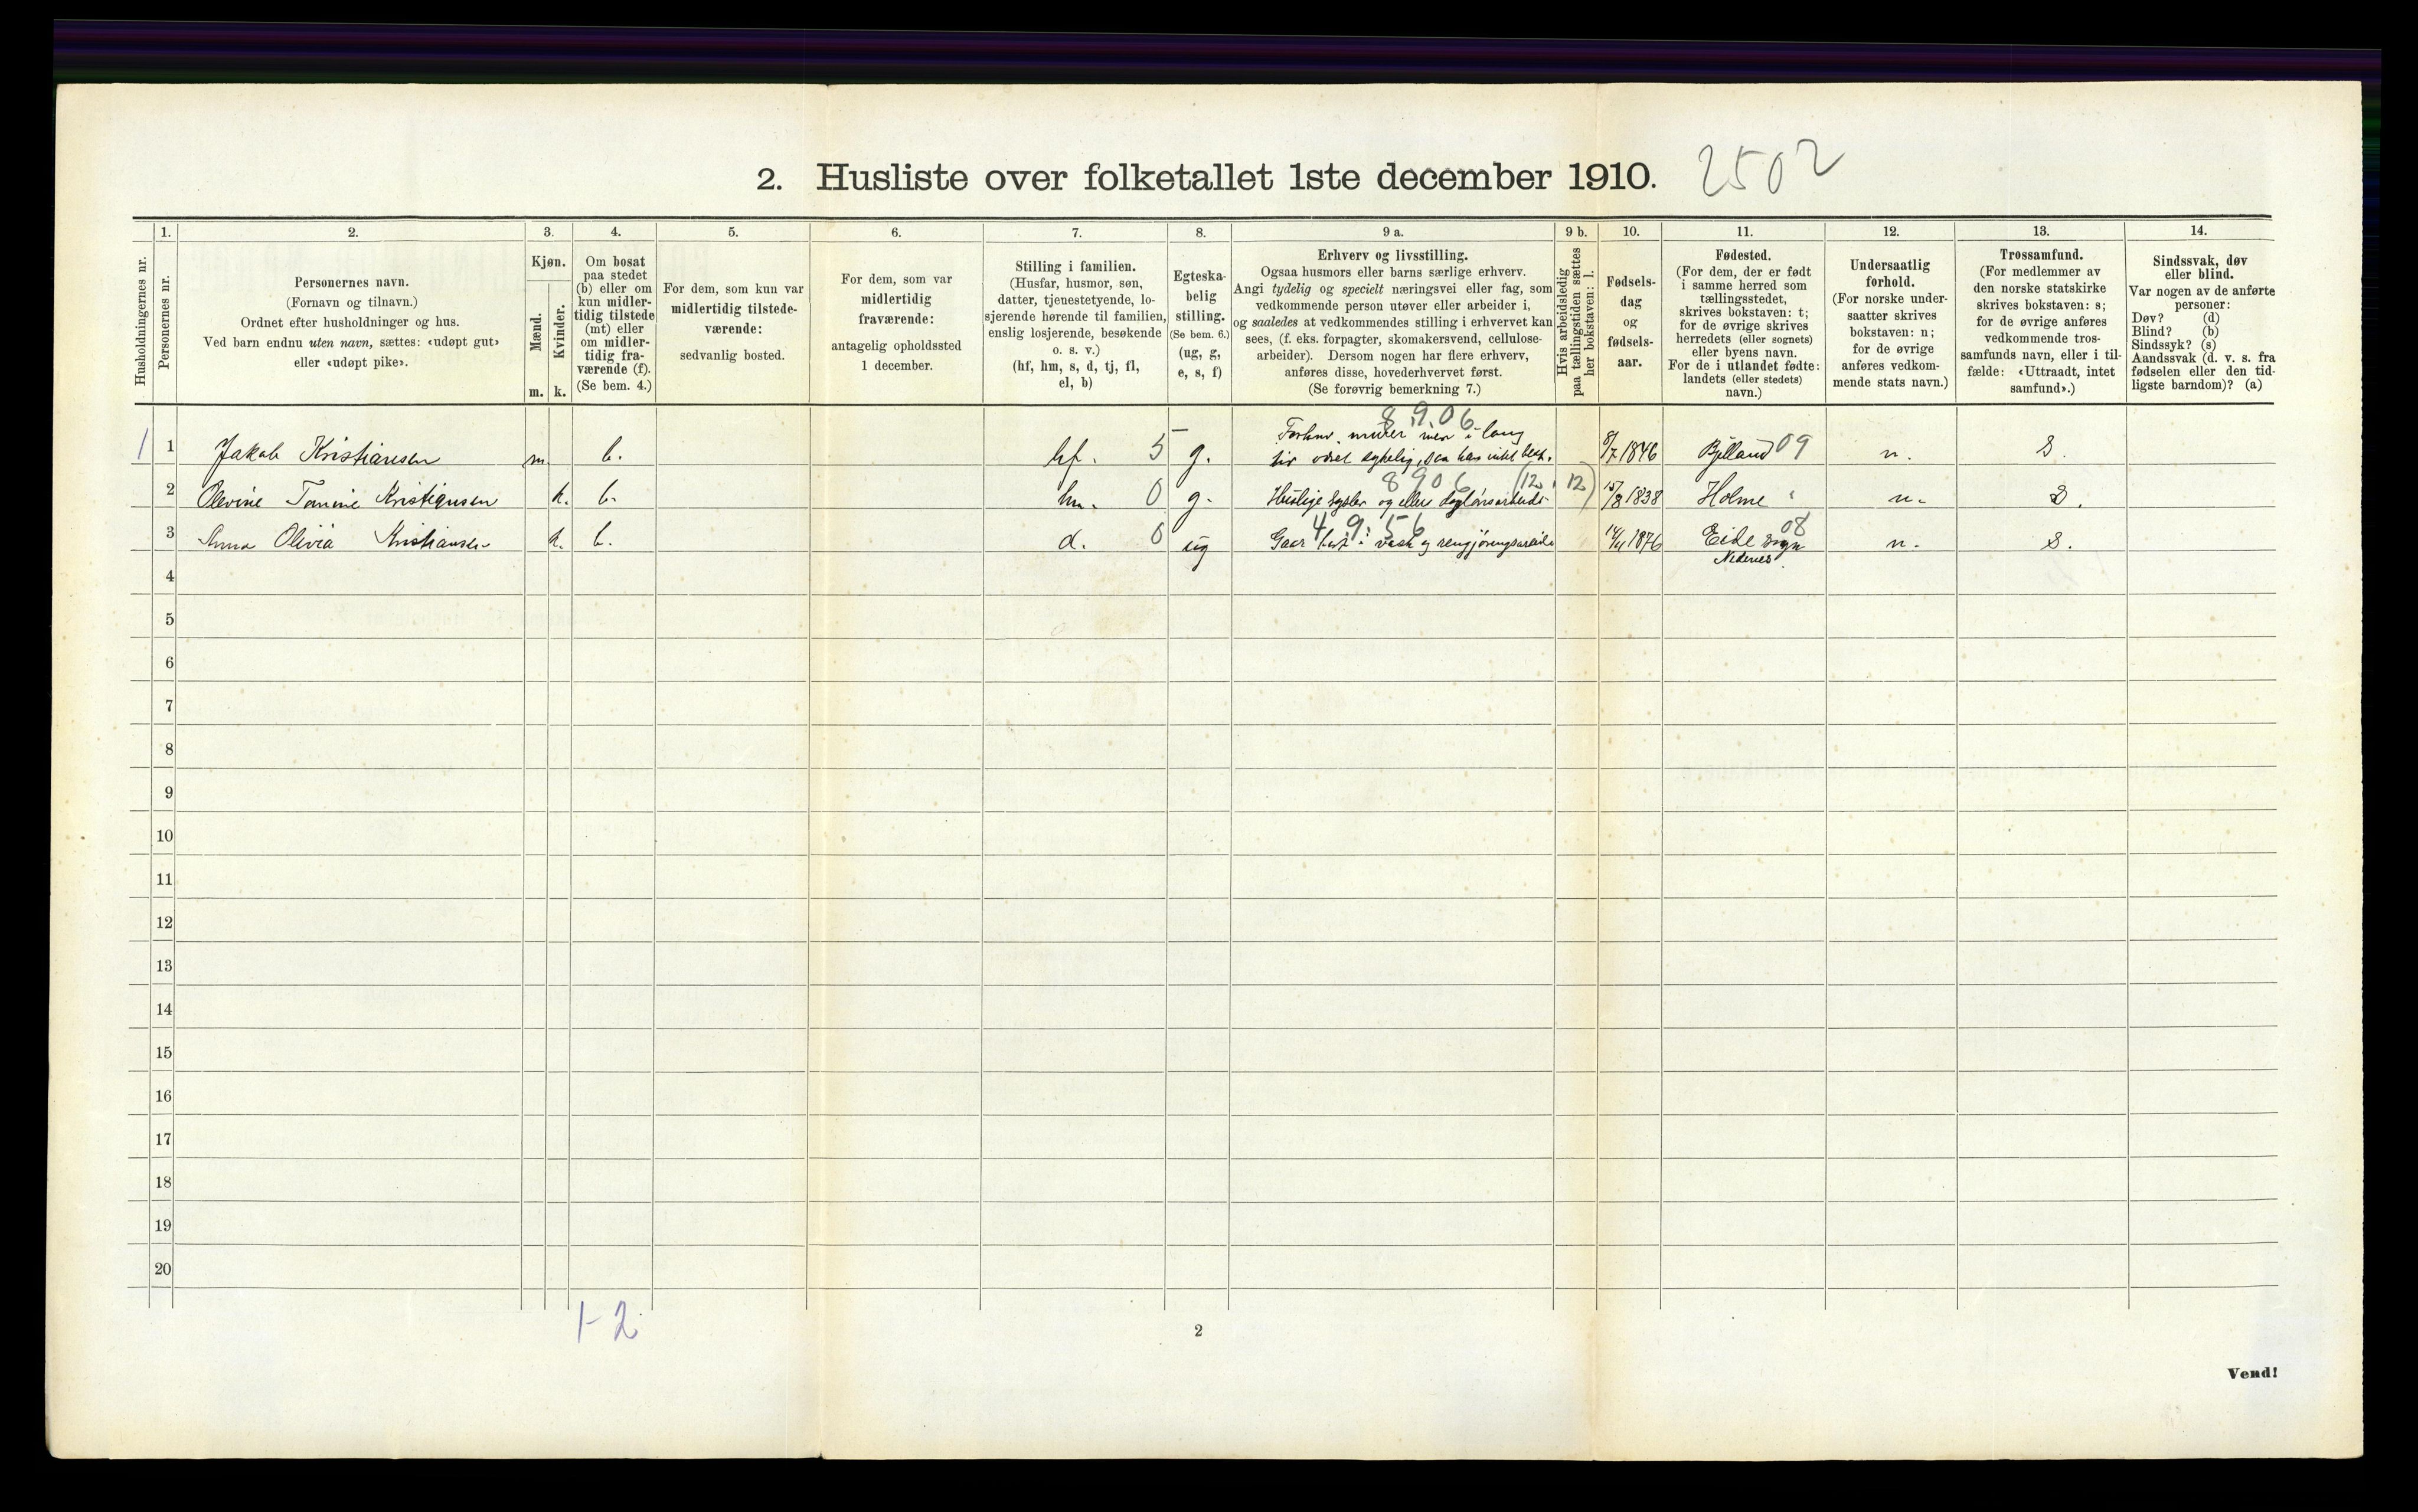 2. Husliste over folketallet 1ste december 1910. 2502
Husholdningernes nr.
1.
Personernes nr.
2.
Personernes navn.
(Fornavn og tilnavn.)
Ordnet efter husholdninger og hus.
Ved barn endnu uten navn, sættes: «udøpt gut»
eller «udøpt pike».
3.
Kjøn.
Mænd.
Kvinder.
m. k.
4.
Om bosat
paa stedet
(b) eller om
kun midler-
tidig tilstede
(mt) eller
om midler-
tidig fra-
værende (f).
(Se bem. 4.)
5.
For dem, som kun var
midlertidig tilstede-
værende:
sedvanlig bosted.
6.
For dem, som var
midlertidig
fraværende:
antagelig opholdssted
1 december.
7.
Stilling i familien.
(Husfar, husmor, søn,
datter, tjenestetyende, lo-
sjerende hørende til familien,
enslig losjerende, besøkende
o. s. v.)
(hf, hm, s, d, tj, fl,
el, b)
8.
Egteska-
belig
stilling.
(Se bem. 6.)
(ug, g,
e, s, f)
9 a.
Erhverv og livsstilling.
Ogsaa husmors eller barns særlige erhverv.
Angi tydelig og specielt næringsvei eller fag, som
vedkommende person utøver eller arbeider i,
og saaledes at vedkommendes stilling i erhvervet kan
sees, (f. eks. forpagter, skomakersvend, cellulose-
arbeider). Dersom nogen har flere erhverv,
anføres disse, hovederhvervet først.
(Se forøvrig bemerkning 7.)
9 b.
Hvis arbeidsledig
paa tællingstiden sættes
her bokstaven: l.
10.
Fødsels-
dag
og
fødsels-
aar.
11.
Fødested.
(For dem, der er født
i samme herred som
tællingsstedet,
skrives bokstaven: t;
for de øvrige skrives
herredets (eller sognets)
eller byens navn.
For de i utlandet fødte:
landets (eller stedets)
navn.)
12.
Undersaatlig
forhold.
(For norske under-
saatter skrives
bokstaven: n;
for de øvrige
anføres vedkom-
mende stats navn.)
13.
Trossamfund.
(For medlemmer av
den norske statskirke
skrives bokstaven: s;
for de øvrige anføres
vedkommende tros-
samfunds navn, eller i til-
fælde: «Uttraadt, intet
samfund».)
14.
Sindssvak, døv
eller blind.
Var nogen av de anførte
personer:
Døv? (d)
Blind? (b)
Sindssyk? (s)
Aandssvak (d. v. s. fra
fødselen eller den tid-
ligste barndom)? (a)
8.9.06
murer men i lang
1 1 Jakob Kristiansen m. b. hf. 5 g. tid været sykelig, 8/7 1846 Bjelland 09 n. S.
8906 (12. 12)
2 Olevine Tomine Kristiansen k. b. hm. 0 g. Huslige sysler og ellers daglønsarbeide 15/8 1838 Holme " n. S.
4 9 : 5 6 08
3 Anna Olivia Kristiansen k. b. d. 0 ug Gaar i vask og rengjøringsarbeide 14/11 1876 Eide sogn n. S.
Nedenes
4
5
6
7
8
9
10
11
12
13
14
15
16
17
18
19
20
1-2
2
Vend!